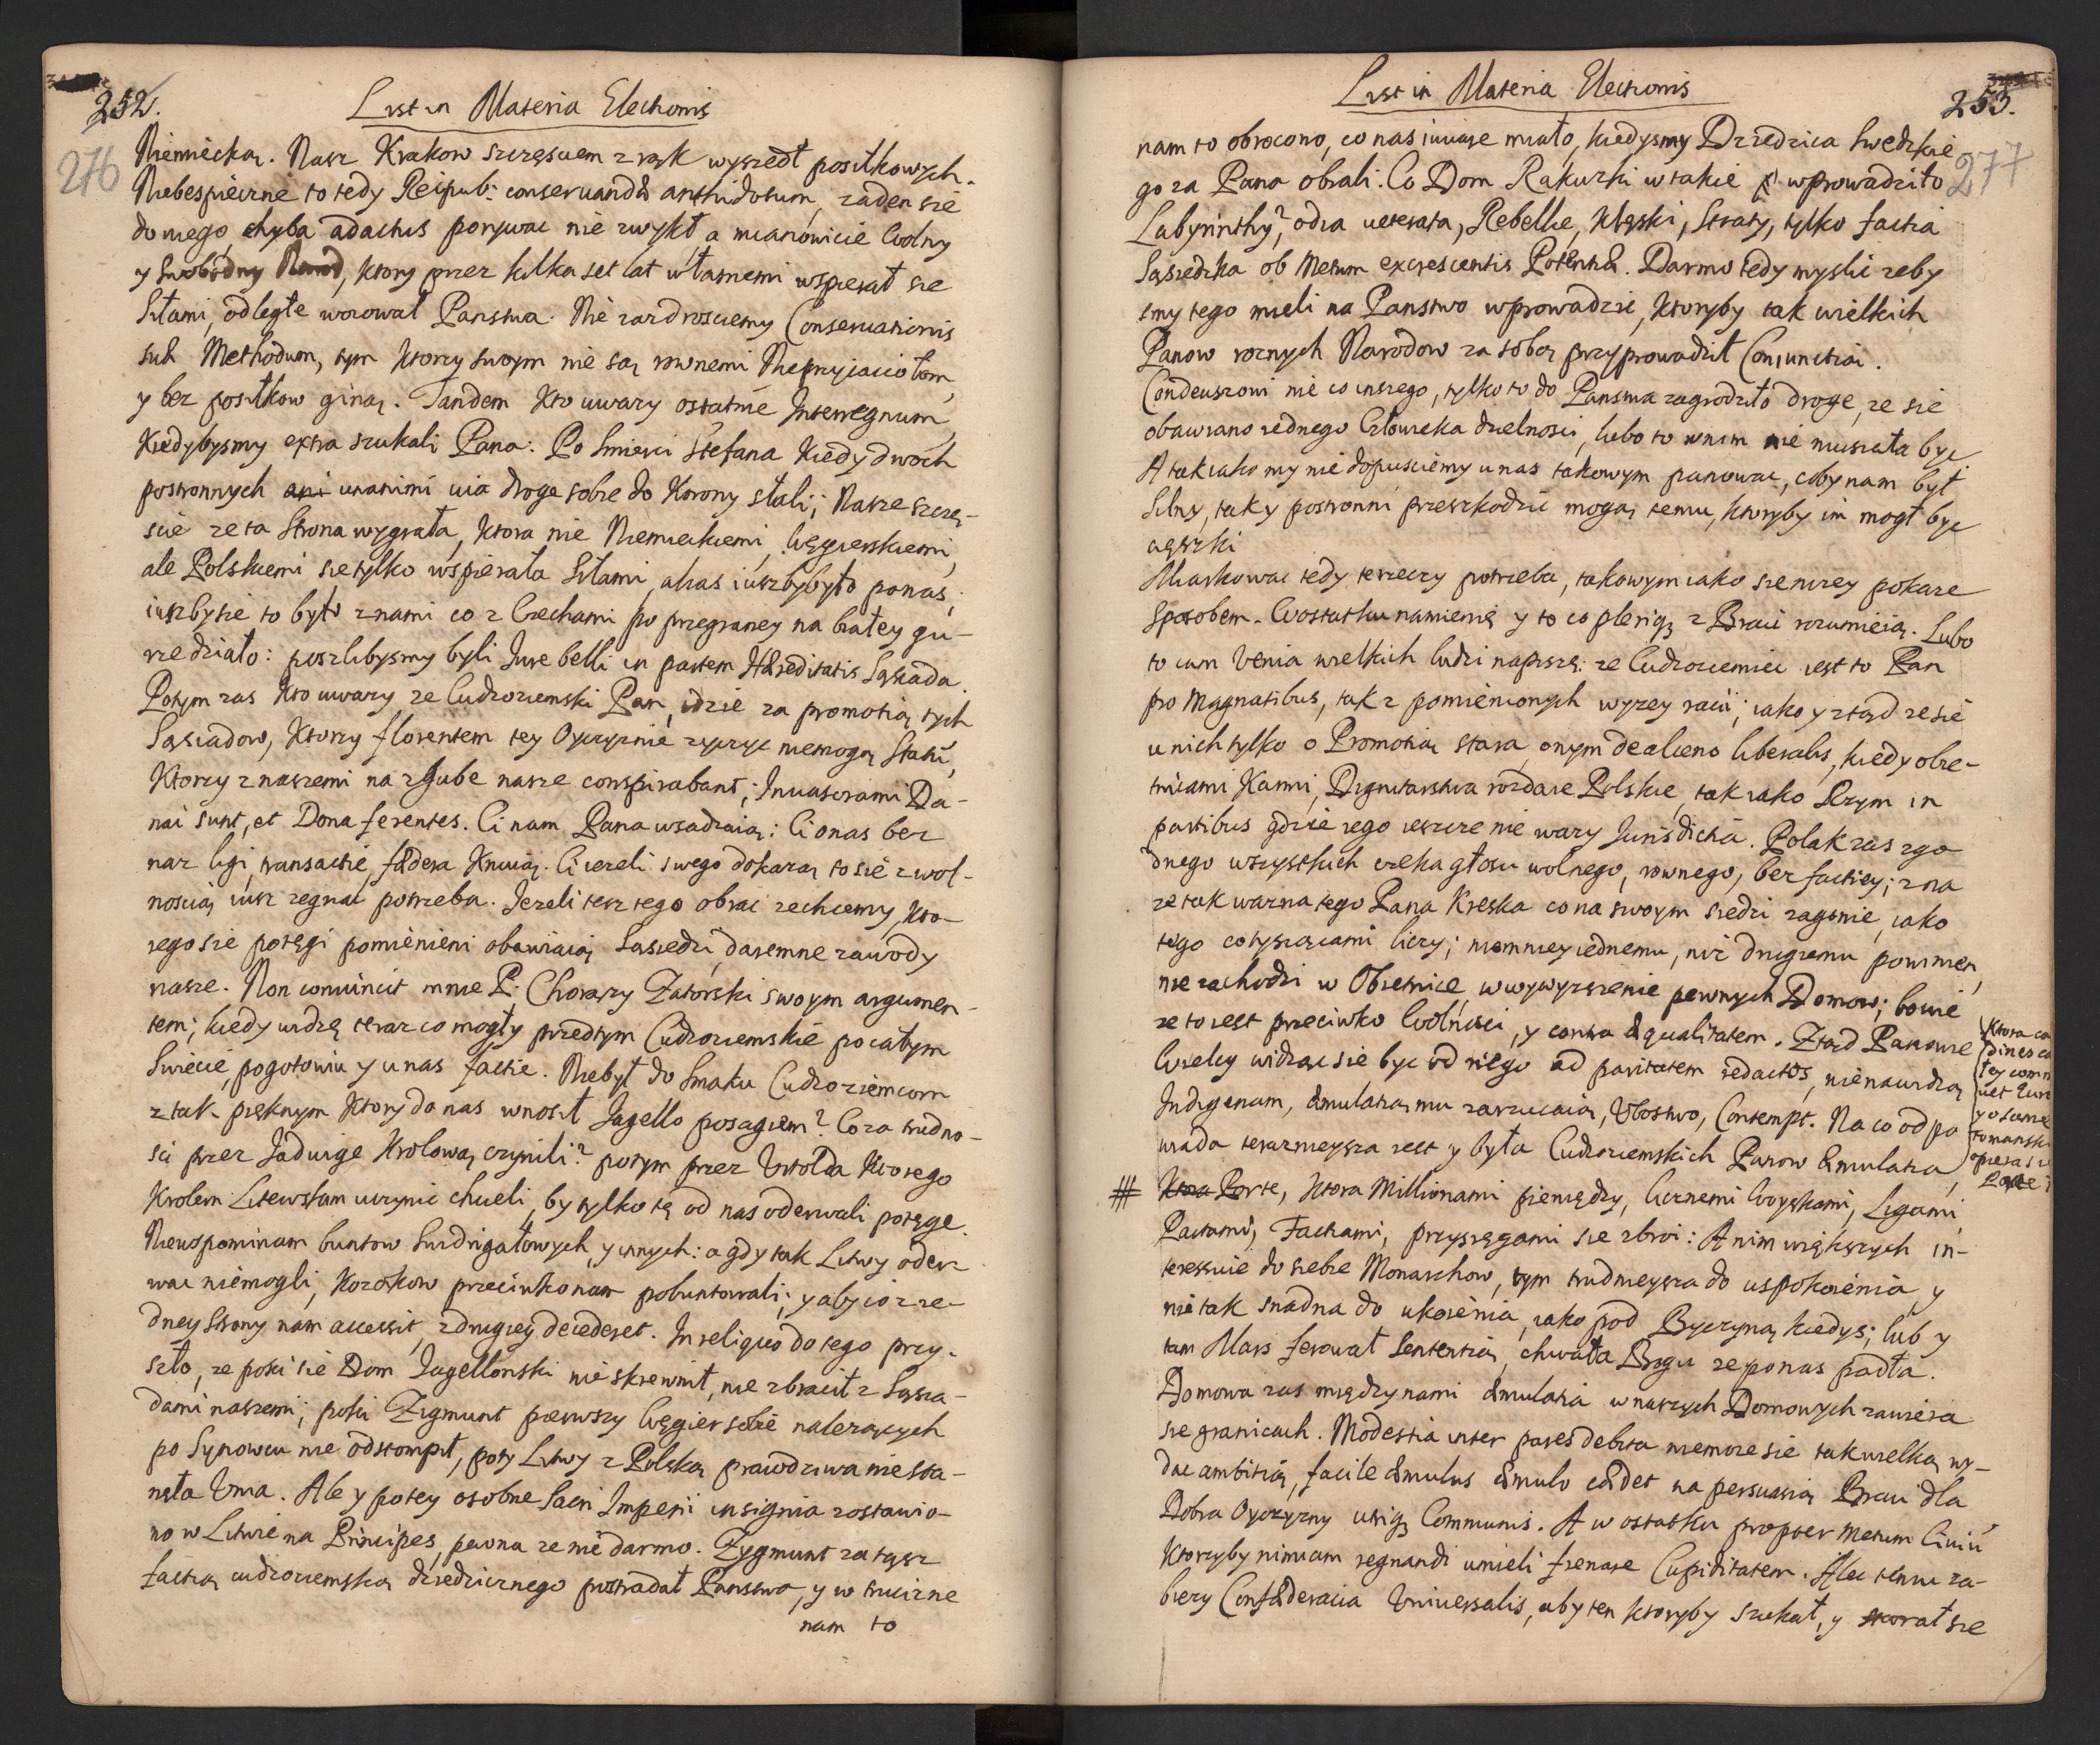 252.
276
List in Materia Electionis
Niemiecką. Nasz Krakow szczęsciem z rąk wyszedł posiłkowych.
Niebespieczne to tedy Reipub: conservandæ anthidotum, zaden sie
do niego chyba adactus porywac nie zwykł, a mianowicie Wolny
y Swobodny Narod, ktory przez kilka set lat własnemi wspierał sie
Siłami, odległe woiował Panstwa. Nie zazdrosciemy Conservationis
suæ Methodum, tym ktorzy swoym nie są rownemi Nieprzyiaciołom,
y bez posiłkow giną. Tandem Kto uwazy ostatnie Interregnum,
Kiedybysmy extra szukali Pana: Po Smierci Stefana Kiedy dwoch
postronnych armis via droge sobie do Korony słali; Nasze szczę-
scie ze ta Strona wygrała, ktora nie Niemieckiemi, Węgierskiemi,
ale Polskiemi sie tylko wspierała Siłami, alias iuszby było po nas;
iuszby sie to było z nami co z Czechami po przegraney na białey gu-
rze działo: poszlibysmy byli Jure belli in partem Hæreditatis Sąsiada.
Potym zas kto uwazy ze Cudzoziemski Pan, idzie za promotią tych
Sąsiadow, Ktorzy florentem tey Oyczyznie zyczyc niemogą Statū,
Ktorzy z naszemi na zgube nasze conspirabant; Invasorami Da-
nai sunt, et Dona ferentes. Ci nam Pana wsadzaią: Ci o nas bez
nas ligi, transactie, fædera Knuią. Ci iezeli swego dokazą to sie z wol-
noscią iusz zegnać potrzeba. Jezeli tesz tego obrac zechcemy, kto-
rego sie potęgi pomienieni obawiaią Sąsiedzi, daremne zawody
nasze. Non convincit mnie P. Chorązy Zatorski swoym argumen-
tem; kiedy widzę teraz co mogły przedtym Cudzoziemskie po całym
Swiecie, pogotowiu y u nas factie. Niebył do Smaku Cudzoziemcom
z tak pięknym ktory do nas wnosił Jagello posagiem? Co za trudno-
sci przez Jadwige Krolową czynili? potym przez Witolda ktorego
Krolem Litewskim uczynic chcieli, by tylko tę od nas oderwali potęge.
Niewspominam buntow Swidrigałowych, y innych: a gdy tak Litwy oder-
wac niemogli, Kozakow przeciwko nam pobuntowali; y aby co z ie-
dney Strony nam accessit, z drugiey decederet. In reliquo do tego przy-
szło, ze poki sie Dom Jagellonski nie skrewnił, nie zbracił z Sąsia-
dami naszemi; poki Zigmunt pierwszy Węgier sobie nalezących
po Synowcu nie odstompił, poty Litwy z Polską prawdziwa nie sta-
nęła Unia. Ale y potey osobne Sacri Imperii insignia zostawio-
no w Litwie na Principes, pewna ze nie darmo. Zygmunt za tęsz
factią cudzoziemską dziedzicznego postradał Panstwa, y w trucizne
nam to
253.
277
List in Materia Electionis
nam to obrocono, co nas inuare miało, kiedysmy Dziedzica Swedzkie
go za Pana obrali. Co Dom Rakuzki w takie wprowadziło
Labyrinthy? odia veterata, Rebellie, Klęski, Straty, tylko factia
Sąsiedzka ob Metum excrescentis Potentiæ. Darmo tedy myslic zeby
smy tego mieli na Panstwo wprowadzic, Ktoryby tak wielkich
Panow roznych Narodow za sobą przyprowadził Coniunctią.
Condeuszowi nic co inszego, tylko to do Panstwa zagrodziło droge, ze sie
obawiano iednego Człowieka dzielnosci, lubo to w nim nie musiała byc
A tak iako my nie dopusciemy u nas takowym panowac, coby nam był
Silny, tak y postronni przeszkodzic mogą temu, ktoryby im mogł byc
cięszki
Miarkowac tedy te rzeczy potrzeba, takowym iako sie nizey pokaze
Sposobem. W ostatku namienię y to co pleriq; z Braci rozumieią. Lubo
to cum Venia wielkich ludzi napiszę: ze Cudzoziemiec iest to Pan
pro Magnatibus, tak z pomienionych wyzey racii, iako y ztąd ze sie
u nich tylko o Promotią stara, onym de alieno liberalis, kiedy obie-
tnicami Karmi, Dignitarstwa rozdaie Polskie, tak iako Rzym in
partibus gdzie iego ieszcze nie wazy Jurisdictia. Polak zas zgo
dnego wszystkich czeka głosu wolnego, rownego, bez factiey; zna
ze tak wazna tego Pana Kreska co na swoym siedzi zagonie, iako
tego co tysiącami liczy; niemniey iednemu, niz drugiemu powinien,
nie zachodzi w Obietnice, w wywyzszenie pewnych Domow; bo wie
ze to iest przeciwko Wolnosci, y contra æqualitatem. Ztąd Panowie
Wielcy widząc sie byc od niego ad paritatem redactos, nienawidzą
Indigenam, æmulatią mu zarzucaią, Ubostwo, Contempt. Na co od po
wiada terazneysza iest y była Cudzoziemskich Panow æmulatia,
Porte, ktora Millionami pieniędzy, licznemi Woyskami, Ligami,
Pactami, Factiami, przysięgami sie zbroi: A nim większych in-
teressuie do siebie Monarchow, tym trudnieysza do uspokoienia, y
nie tak snadna do ukoienia, iako pod Byczyną kiedys; lub y
tam Mars ferował Sententią, chwała Bogu ze po nas padła.
Domowa zas między nami æmulatia w naszych Domowych zawiera
sie granicach. Modestia inter pares debita niemoze sie tak wielką wy-
dac ambitią, facile æmulus æmulo cædet na persuasią Braci dla
Dobra Oyczyzny utriq; Communis. A w ostatku propter metum Civiū
Ktorzyby nimiam regnandi umieli frenare Cupiditatem. Alec temu za-
biezy Confæderacia Universalis, aby ten ktoryby szukał, y starał sie